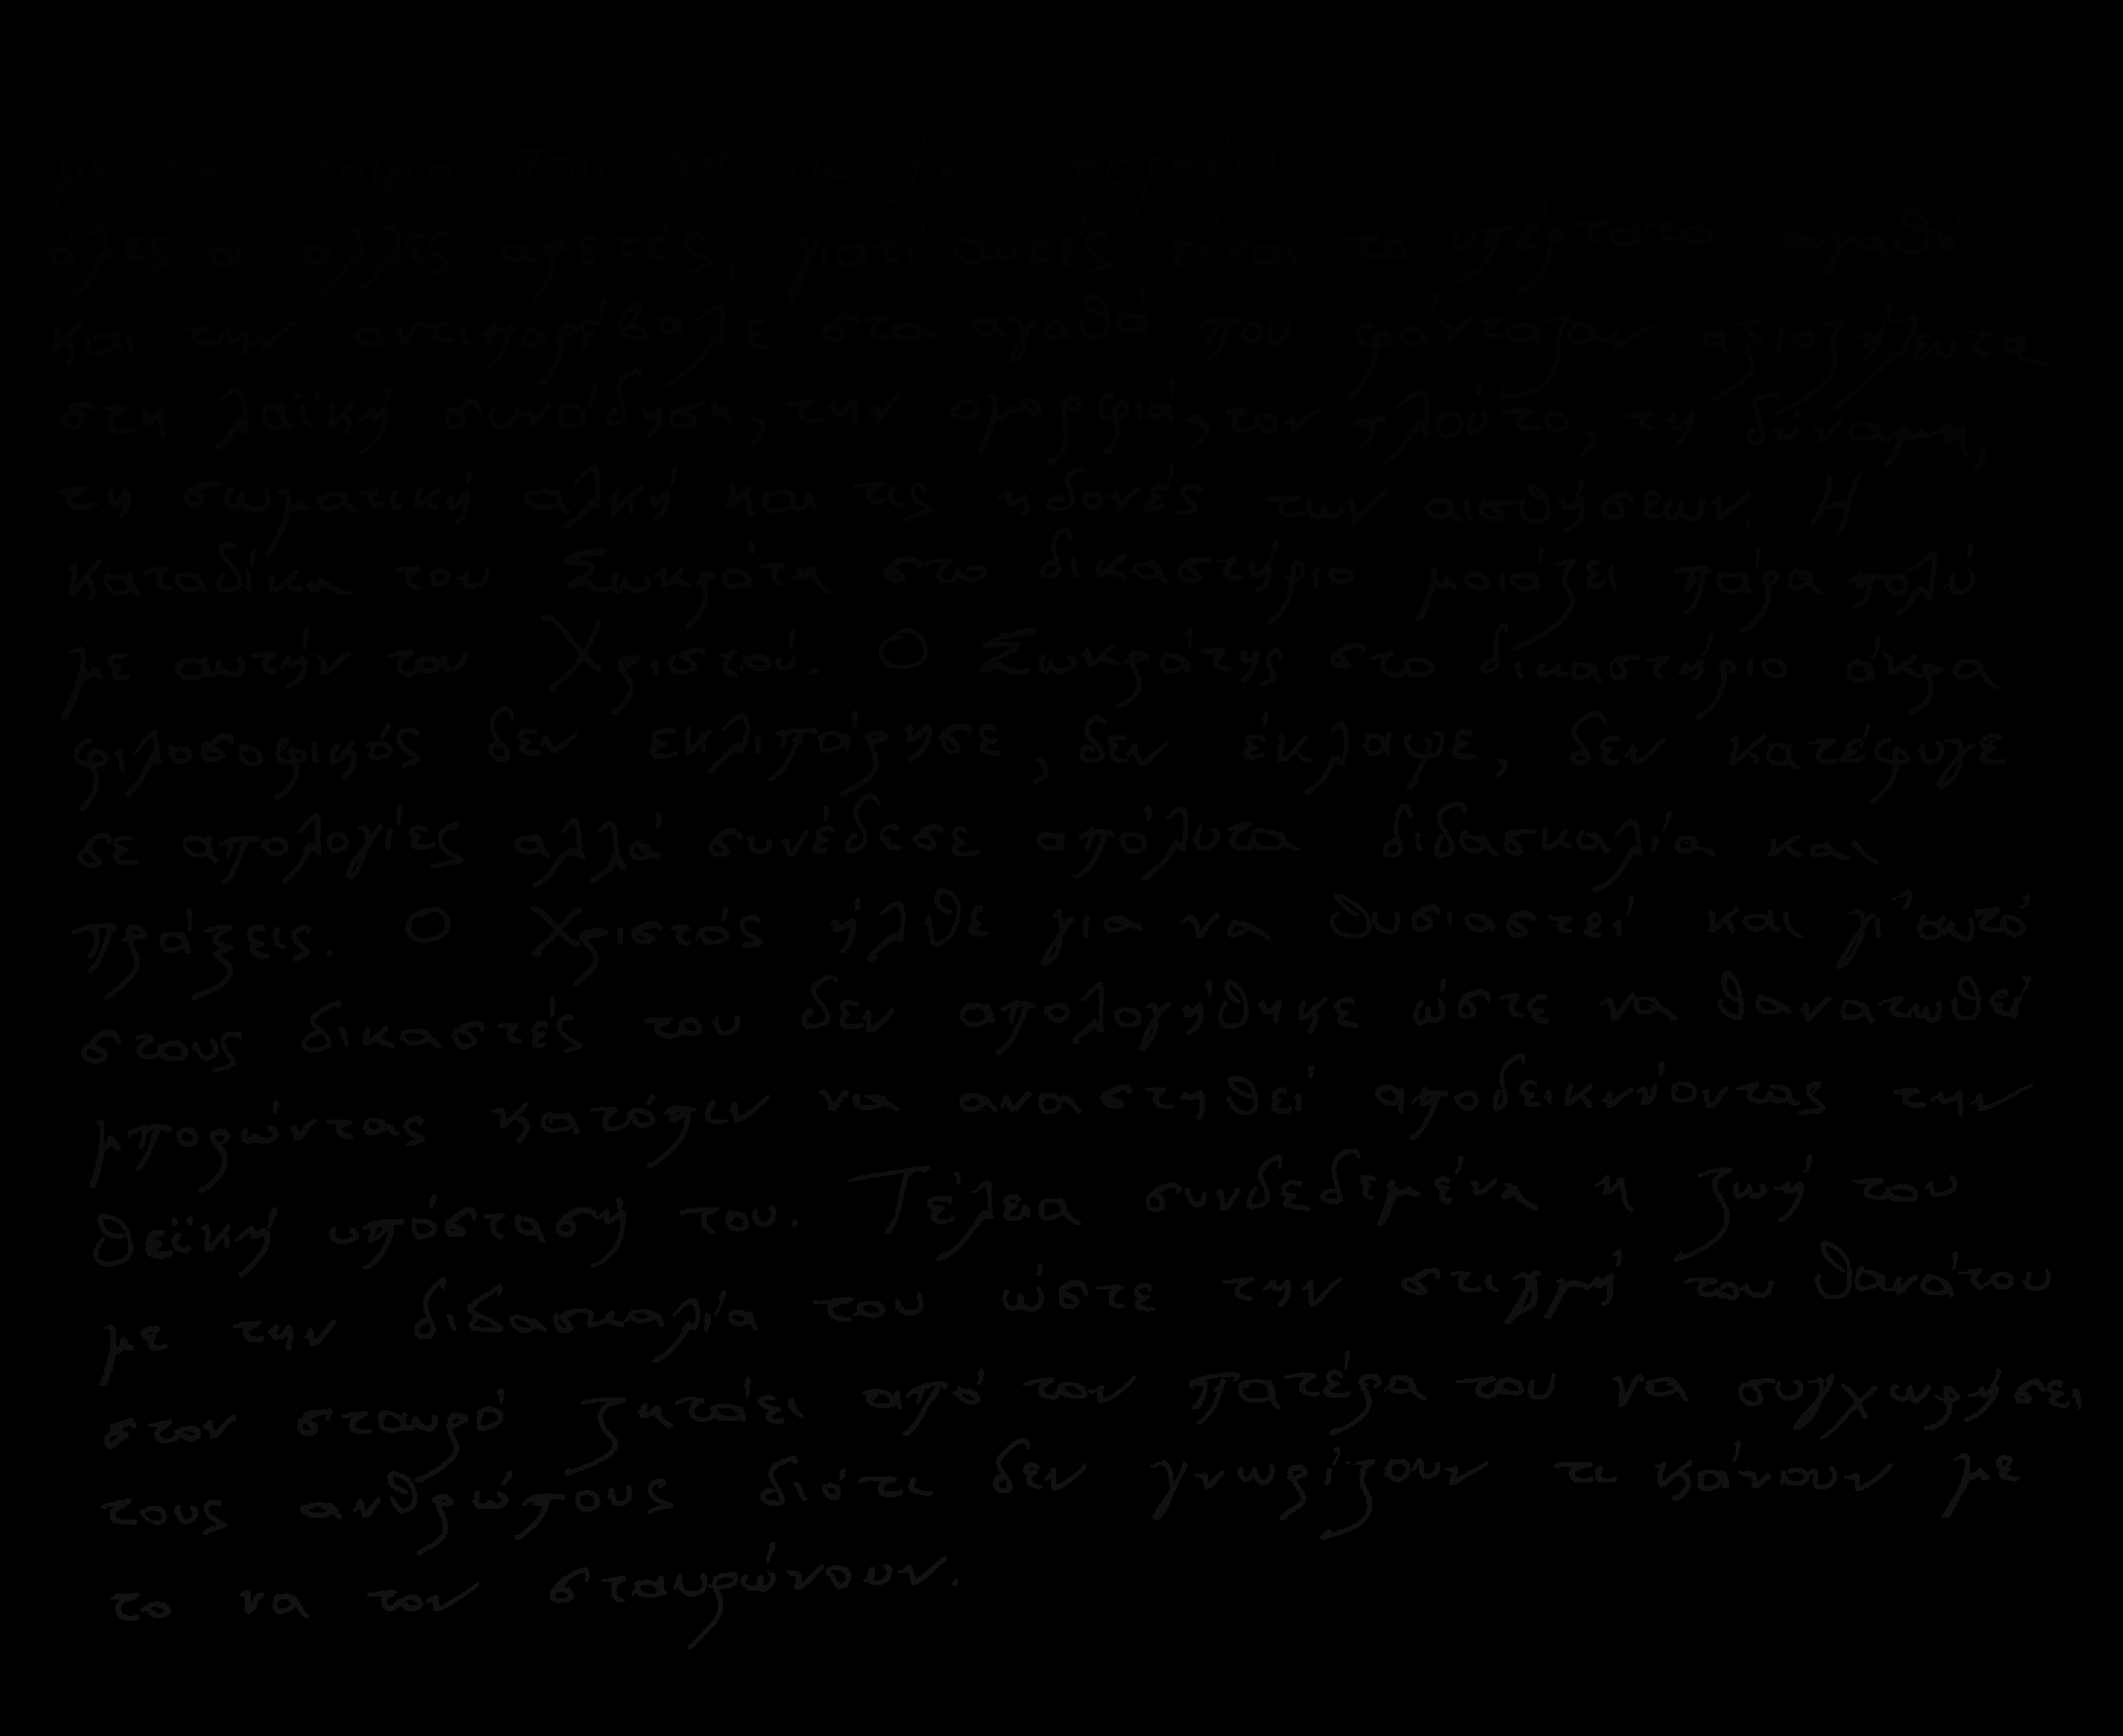 με την σοφία που απ' αυτήν απορρέουν
όλες οι άλλες αρετές, γιατί αυτές είναι το υπέρτατο αγαθό
και την αντιπαρέβαλε στα αγαθά που φάνταζαν αξιοζήλευτα
στη λαϊκή συνείδηση, την ομορφιά, τον πλούτο, τη δύναμη,
τη σωματική αλκή και τις ηδονές των αισθήσεων. Η
καταδίκη του Σωκράτη στο δικαστήριο μοιάζει πάρα πολύ
με αυτήν του Χριστού. Ο Σωκράτης στο δικαστήριο άκρα
φιλοσοφικός δεν εκλιπάρησε, δεν έκλαψε, δεν κατέφυγε
σε απολογίες αλλά συνέδεσε απόλυτα διδασκαλία και
πράξεις. Ο Χριστός ήλθε για να θυσιαστεί και γι' αυτό
στους δικαστές του δεν απολογήθηκε ώστε να θανατωθεί
μπορώντας κατόπιν να αναστηθεί αποδεικνύοντας την
θεϊκή υπόστασή του. Τέλεια συνδεδεμένη η ζωή του
με την διδασκαλία του ώστε την στιγμή του θανάτου
στον σταυρό ζητάει από τον πατέρα του να συγχωρήσει
τους ανθρώπους διότι δεν γνωρίζουν τι κάνουν με
το να τον σταυρώνουν.